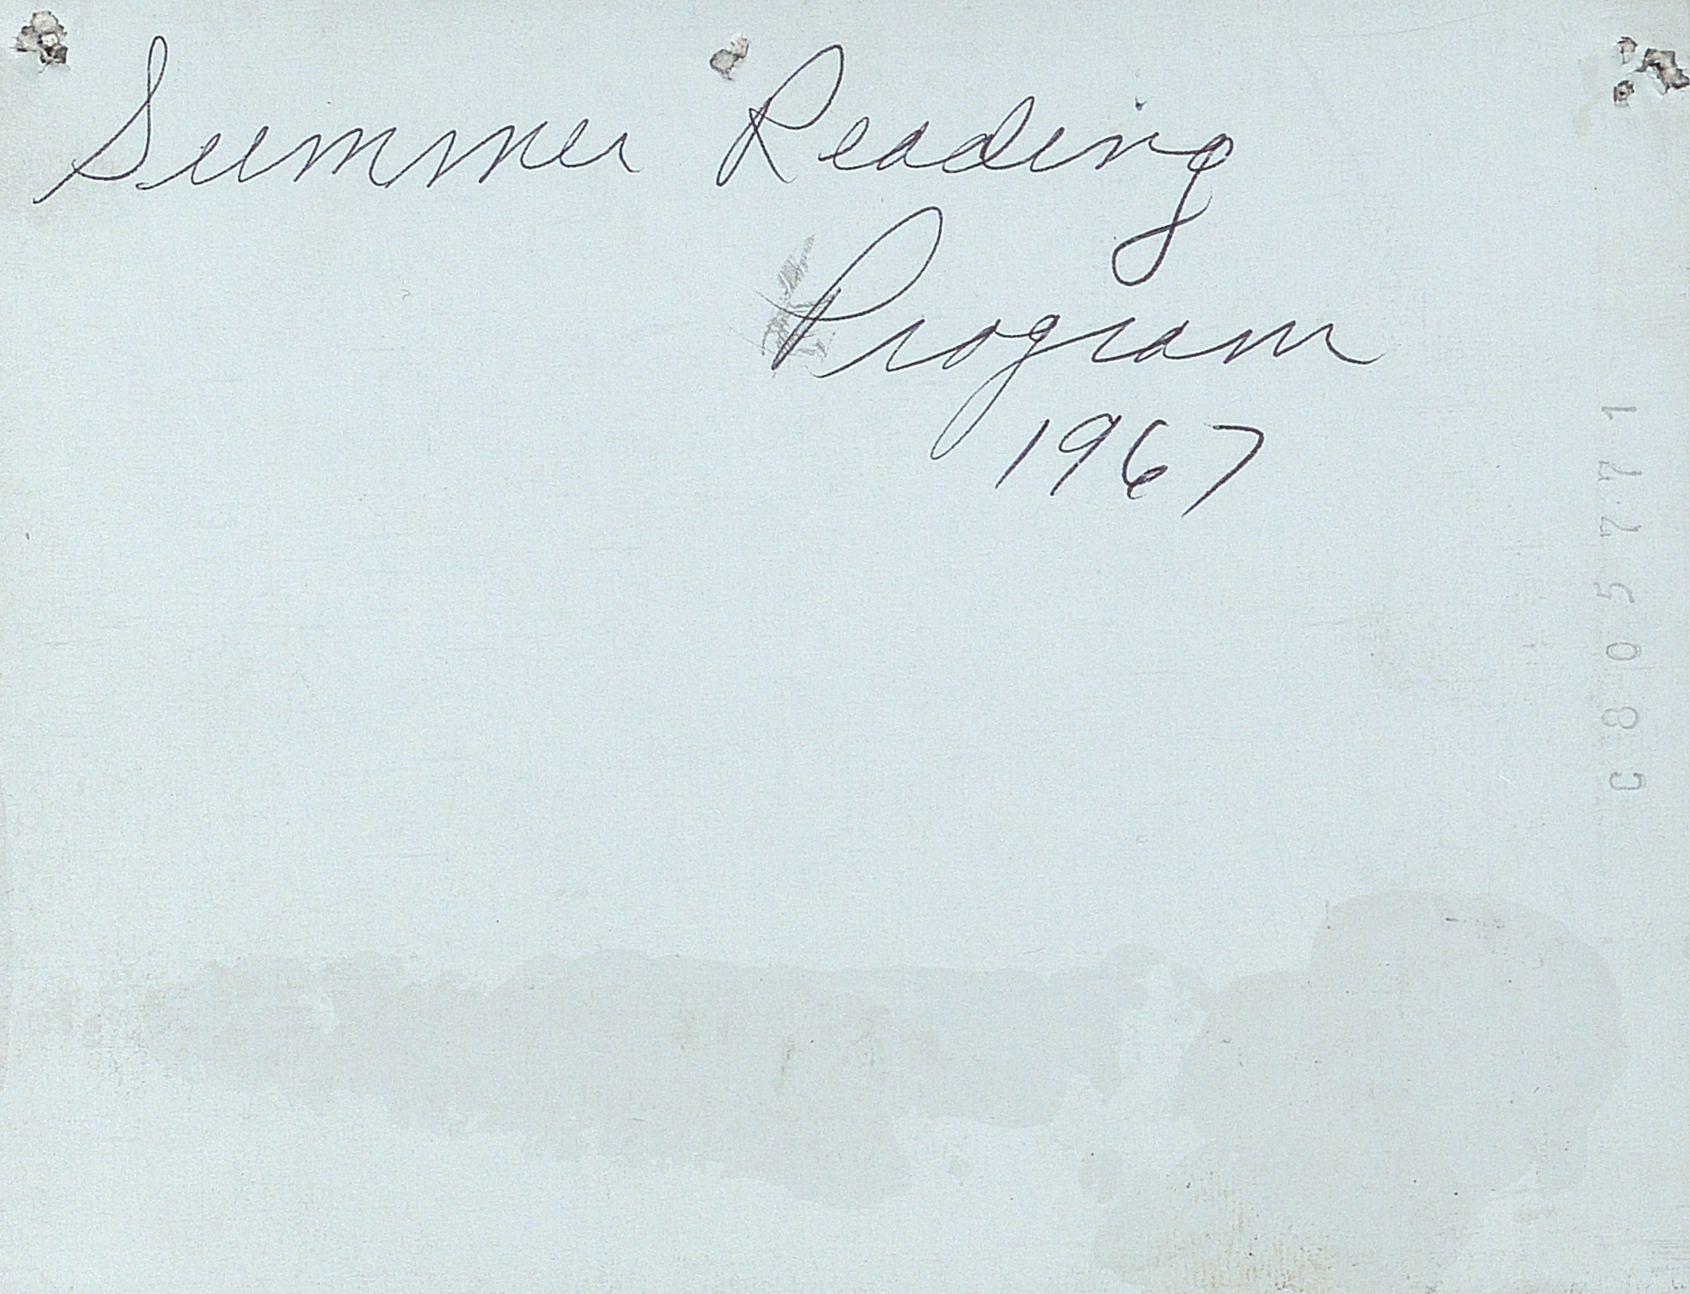 Summer Reading
Program
1967
C8057771